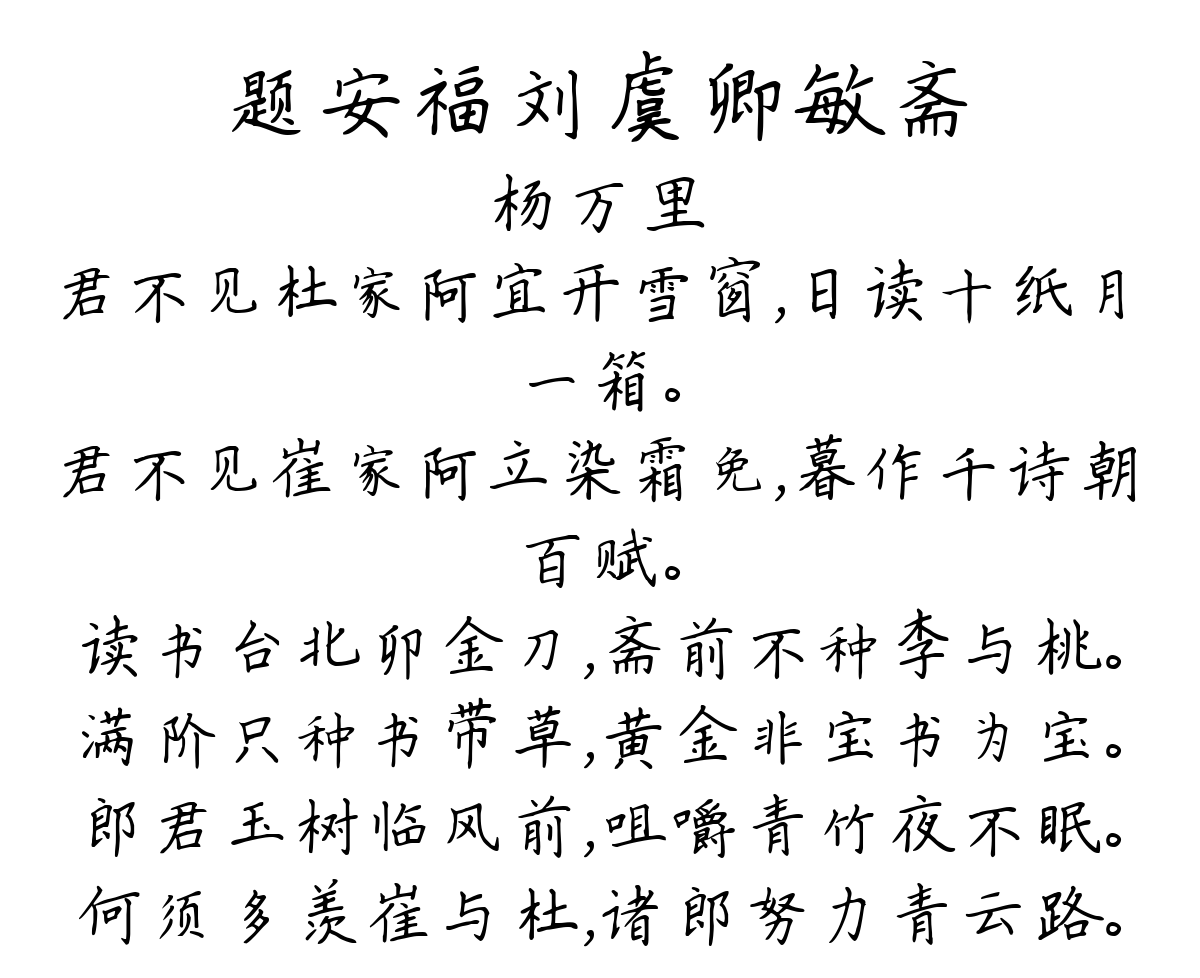 题安福刘虞卿敏斋
杨万里
君不见杜家阿宜开雪窗,日读十纸月
一箱。
君不见崔家阿立染霜免,暮作千诗朝
百赋。
读书台北卯金刀,斋前不种李与桃。
满阶只种书带草,黄金非宝书为宝。
郎君玉树临风前,咀嚼青竹夜不眠。
何须多羡崔与杜,诸郎努力青云路。